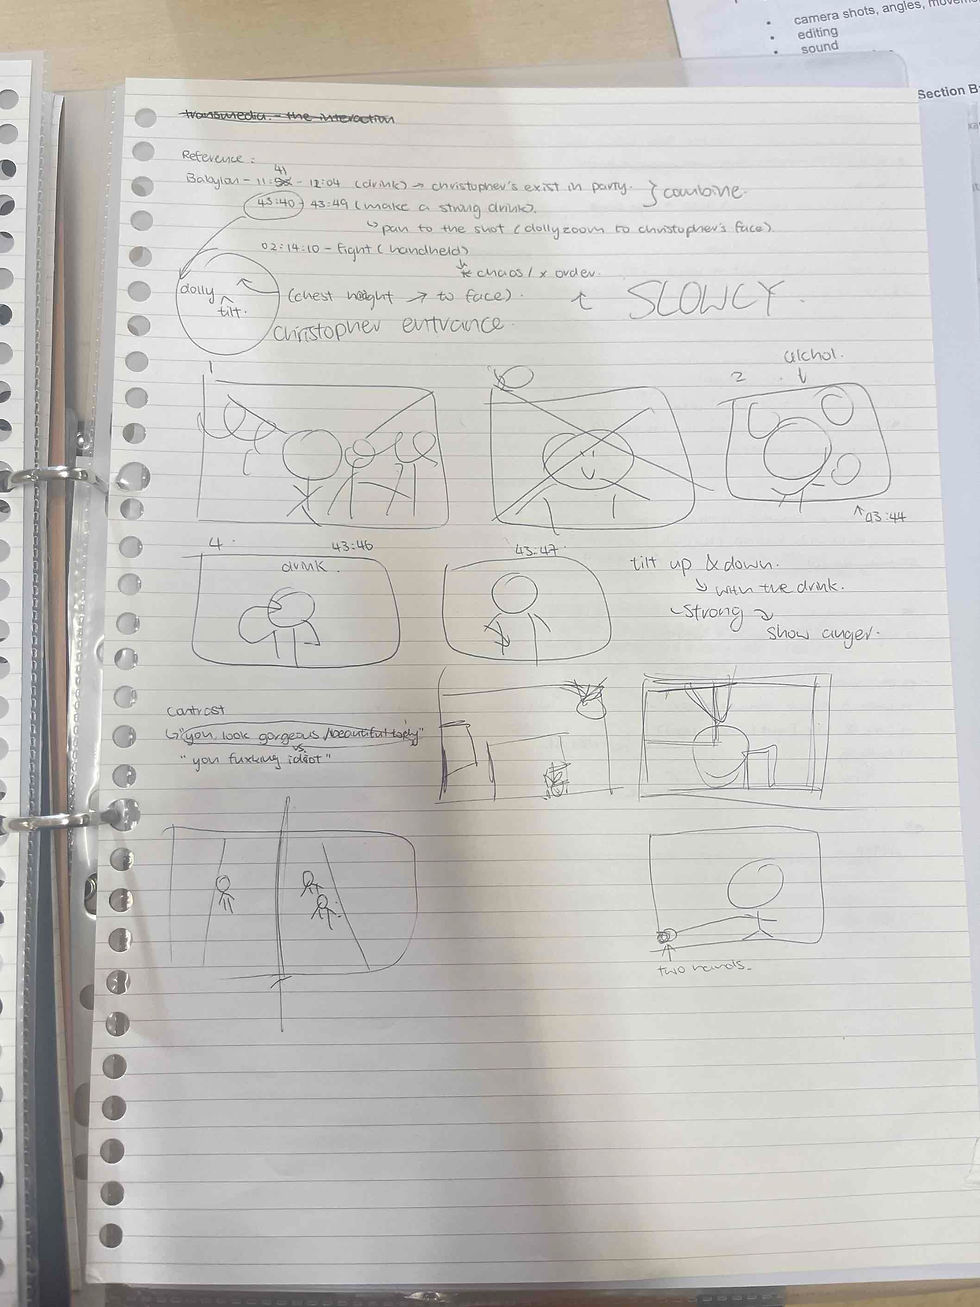 camera shots, angles, movem
editing
sound
Section B:
transmedia - the interaction
Reference:
41
Babylon - 11: - 12:04 (drink) → christopher's exist in party. } combine.
43:40 - 43:49 (make a strong drink).
↳ pan to the shot (dolly zoom to christopher's face)
02:14:10 - Fight (handheld)
chaos / x order.
dolly
tilt.
(chest height → to face).
SLOWLY.
Christopher entrance.
1
2
alchol.
43:44
4.
43:46
drink.
43:47.
tilt up & down.
↳ with the drink.
Strong
show anger.
Contrast
↳ "you look gorgeous / beautiful today"
vs
"you fuxking idiot"
two hands.